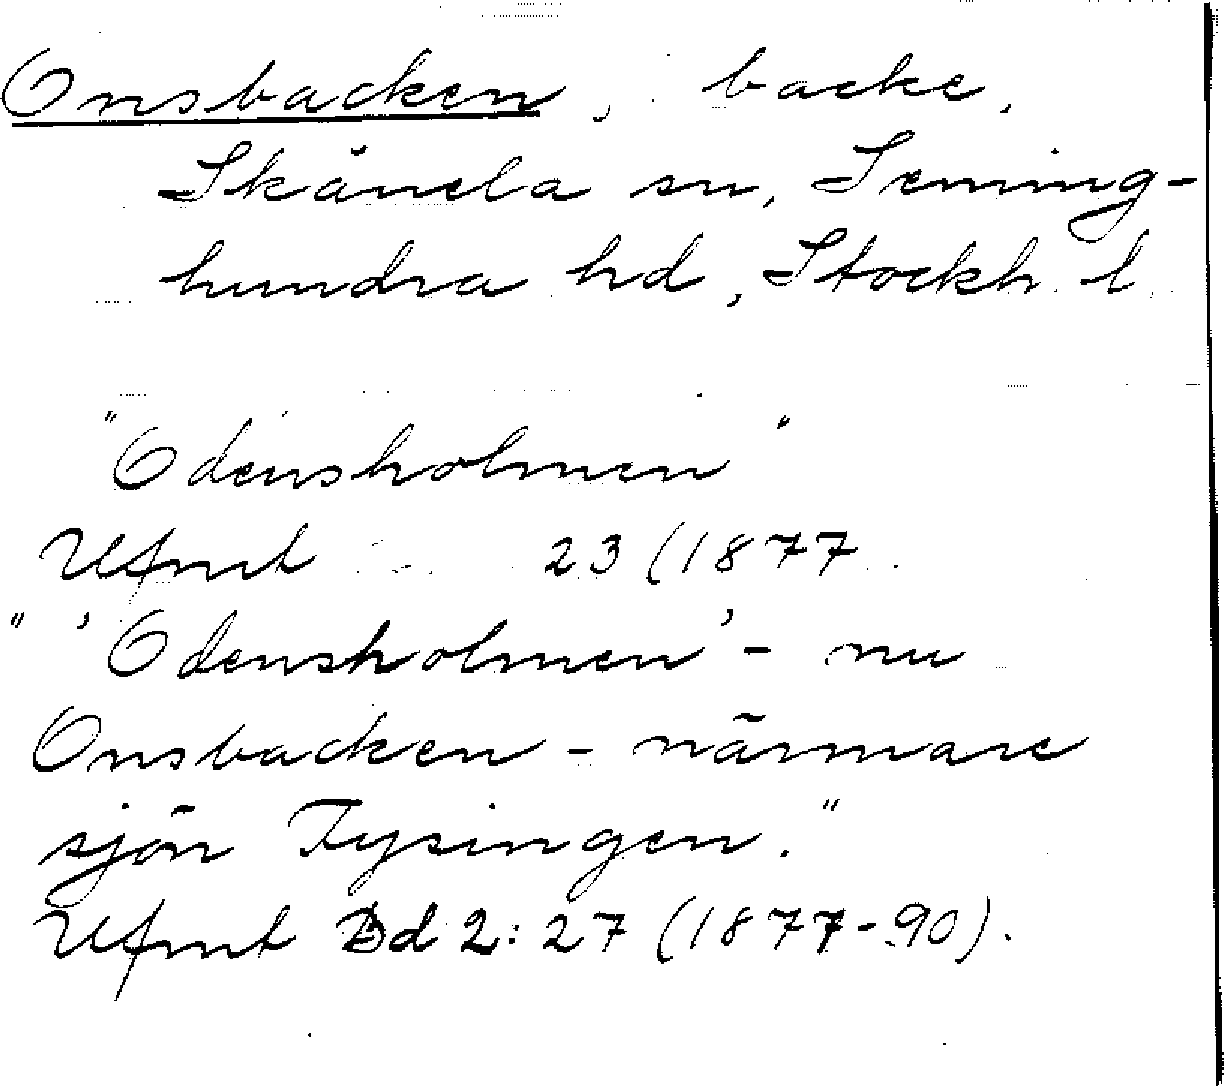 Onsbacken, backe,
Skånela sn, Seming-
hundra hd, Stockh. l.
"Odensholmen"
Ufmt 23 (1877
" 'Odensholmen' - nu
Onsbacken - närmare
sjön Fysingen."
Ufmt Bd 2: 27 (1877-90).